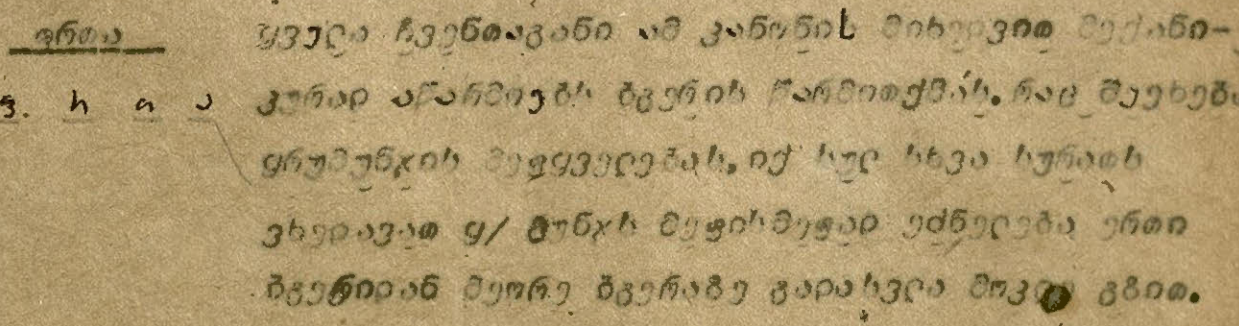 ფრთა ყველა ჩვენთაგანი ამ კანონის მიხედვით მექანი-
ფ. რ თ ა კურად აწარმოებს ბგერის წარმოთქმას. რაც შეეხება
ყრუმუნჯის მეტყველებას, იქ სულ სხვა სურათს
ვხედავათ ყ/ მუნჯს მეტისმეტად ეძნელება ერთი
ბგერიდან მეორე ბგერაზე გადასვლა მოკლე გზით.